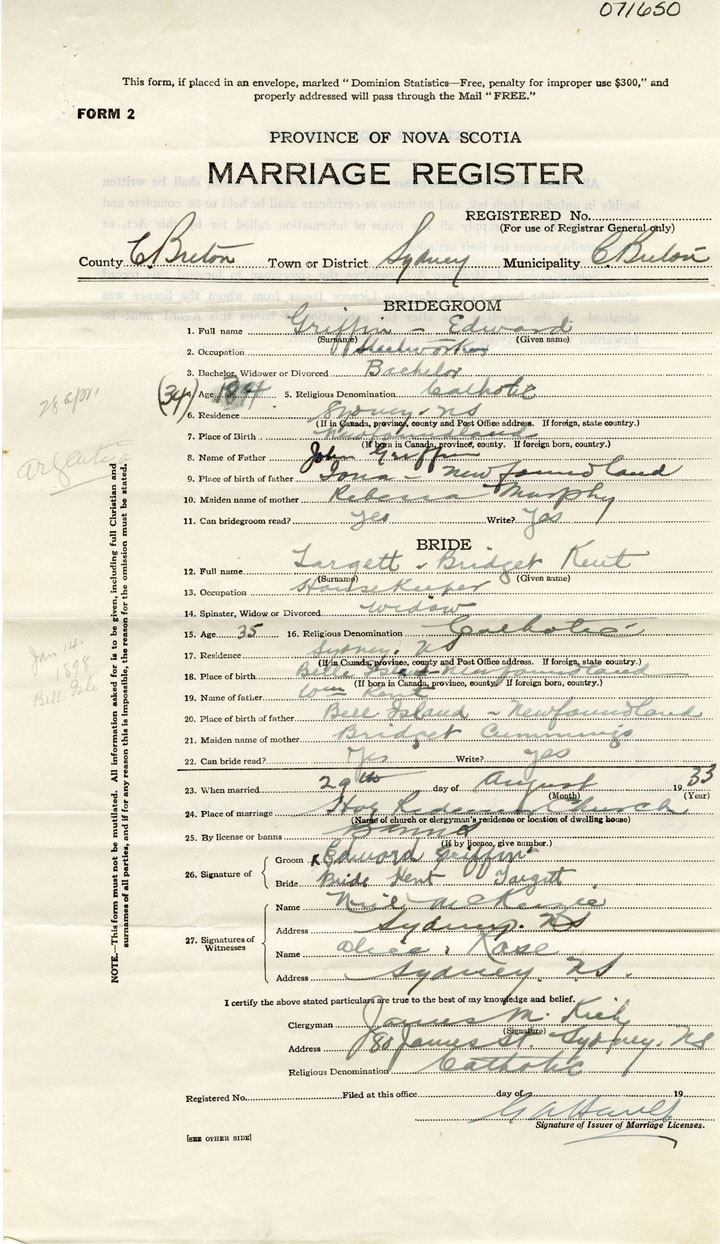 071650
This form, if placed in an envelope, marked " Dominion Statistics—Free, penalty for improper use $300," and
properly addressed will pass through the Mail " FREE."
FORM 2
PROVINCE OF NOVA SCOTIA
MARRIAGE REGISTER
REGISTERED No.
(For use of Registrar General only)
County C. Breton Town or District Sydney Municipality C. Breton
BRIDEGROOM
1. Full name Griffin - Edward
(Surname) (Given name)
2. Occupation Steelworker
3. Bachelor, Widower or Divorced Bachelor
(34) 4. Age 5. Religious Denomination Catholic
6. Residence Sydney. NS
(If in Canada, province, county and Post Office address. If foreign, state country.)
7. Place of Birth Newfoundland
(If born in Canada, province, county. If foreign born, country.)
8. Name of Father John Griffin
9. Place of birth of father Iona - Newfoundland
10. Maiden name of mother Rebecca Murphy
11. Can bridegroom read? yes Write? Yes
BRIDE
12. Full name Targett - Bridget Kent
(Surname) (Given name)
13. Occupation Housekeeper
14. Spinster, Widow or Divorced Widow
15. Age 35 16. Religious Denomination Catholic
17. Residence Sydney. NS
(If in Canada, province, county and Post Office address. If foreign, state country.)
18. Place of birth Belle Island Newfoundland
(If born in Canada, province, county. If foreign born, country.)
19. Name of father Wm Kent
20. Place of birth of father Bell Island - Newfoundland
21. Maiden name of mother Bridget Cummings
22. Can bride read? Yes Write? yes
23. When married 29th day of August 1933
(Month) (Year)
24. Place of marriage Holy Redeemer Church
(Name of church or clergyman's residence or location of dwelling house)
25. By license or banns Banns
(If by licence, give number.)
26. Signature of
Groom x Edward Griffin
Bride Bride Kent Targett
27. Signatures of Witnesses
Name Neil McKenzie
Address Sydney. NS
Name Alice Rose
Address Sydney NS.
I certify the above stated particulars are true to the best of my knowledge and belief.
Clergyman James M. Kiely
(Signature)
Address 80 James St. Sydney. NS
Religious Denomination Catholic
Registered No. Filed at this office day of 19
Signature of Issuer of Marriage Licenses.
[SEE OTHER SIDE]
NOTE.—This form must not be mutilated. All information asked for is to be given, including full Christian and
surnames of all parties, and if for any reason this is impossible, the reason for the omission must be stated.
28 Apr.
Argentia
Jan 14.
1898
Bell Isle